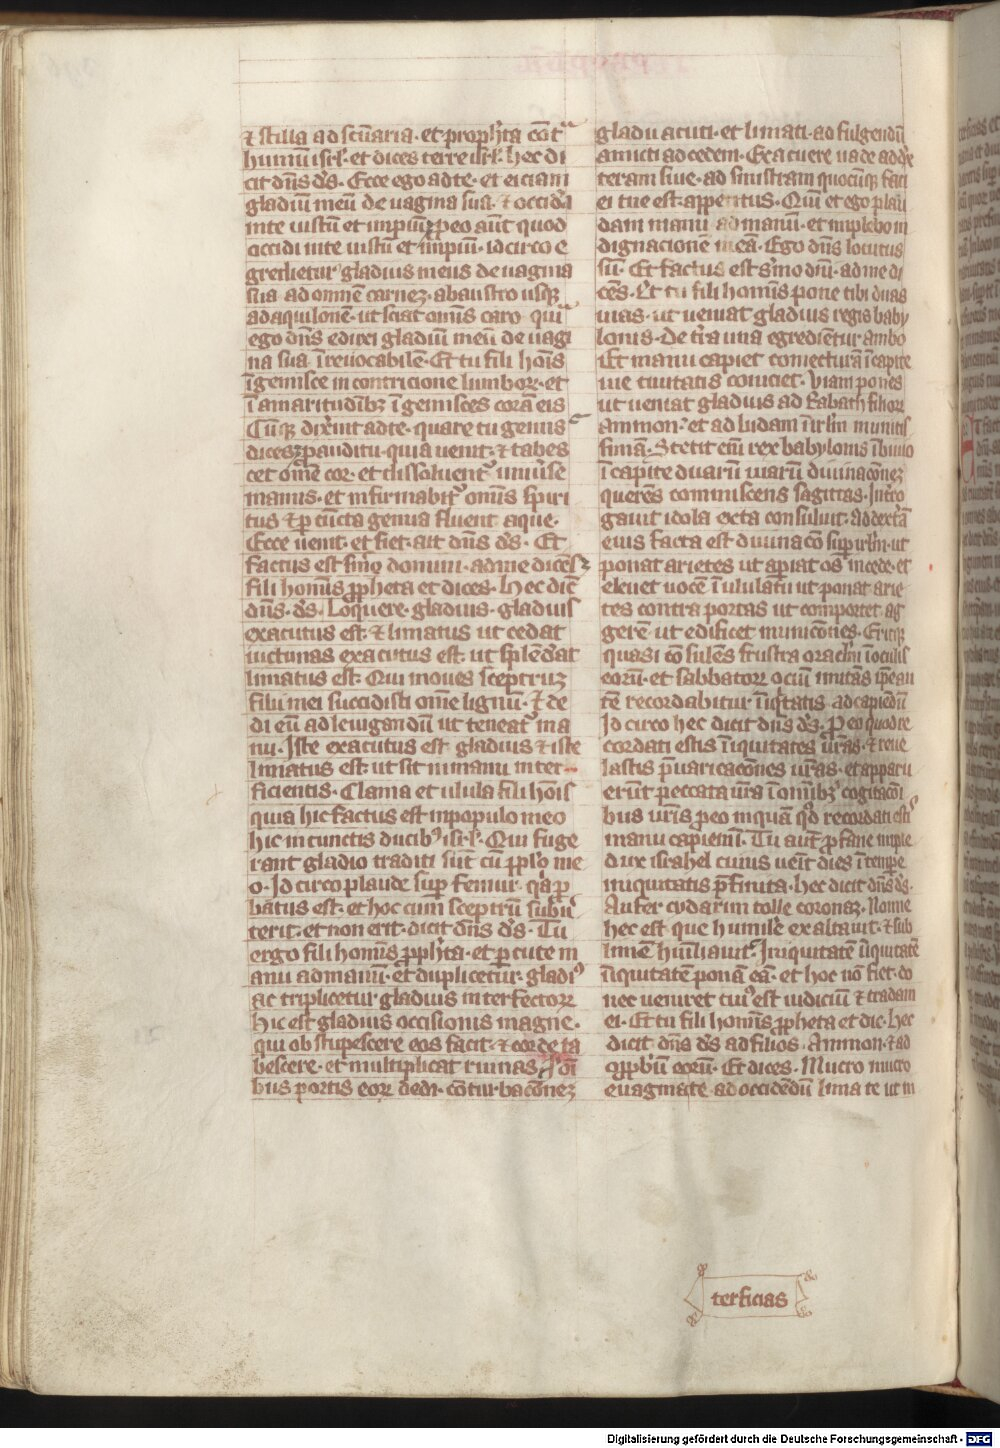 ⁊ stilla ad scūaria · et prophͥta cōtͣ
humū isrl̄ · et dices terre isrl̄ · hec di
cit dn̄s dꝰs · Ecce ego ad te · et eiciam
gladiū meū de uagina sua · ⁊ occidā
in te iustū et impiū · ꝓ eo aūt quod
occidi in te iustū et impiū · id circo e
gredietur gladius meus de uagina
sua ad omnē carnez · ab austro usqꝫ
ad aquilonē · ut sciat omīs caro · quiͣ
ego dn̄s eduxi gladiū meū de uagi
na sua īreuocabilē · Et tu fili hoīs
īgemisce in contricione lumboꝝ · et
ī amaritudībꝫ īgemisces corā eis
Cūqꝫ dixͥint ad te · quare tu gemis
dices ꝓ auditu · quia uenit · ⁊ tabes
cet om̄e cor · et dissoluentͬ uniūse
manus · et infirmabitͬ omīs spiri
tus ⁊ ꝑ cūcta genua fluent aque ·
Ecce uenit · et fiet · ait dn̄s dꝰs · Et
factus est sm̄o domini · ad me dicēs
fili homīs ꝓpheta et dices · Hec dic̄
dn̄s · dꝰs · Loquere · gladius · gladius
exacutus est ⁊ limatus ut cedat
uictimas exacutus est · ut splēdꝰat
limatus est · Qui moues sceptruꝫ
filii mei succidisti om̄e lignū · ⁊ de
di eū ad leuigandū ut teneatͬ ma
nu · Iste exacutus est gladius ⁊ iste
limatus est · ut sit in manu inter
ficientis · Clama et ulula fili hoīs
quia hic factus est in populo meo
hic in cunctis ducibꝰ isrl̄ · Qui fuge
rant gladio traditi sūt cū ꝓplo me
o · Id circo plaude suꝑ femur · qͥa ꝓ
batus est · et hoc cum sceptrū subūͥ
terit · et non erit · dicit dn̄s dꝰs · Tu
ergo fili homīs ꝓphͥta · et ꝑcute m
anu ad manū · et duplicetur gladiꝰ
ac triplicetur gladius interfectoꝝ
hic est gladius occisionis magne ·
qui obstupescere eos facit · ⁊ corde ta
bescere · et multiplicat ruinas · ī oī
bus portis eoꝝ dedi · cōturbacōneꝫ
gladii acuti · et limati · ad fulgendū
amicti ad cedem · Exacuere uade ad dexͥ
teram siue · ad sinistram quocūqꝫ faci
ei tue est · appetitus · Quī et ego plau
dam manu ad manū · et implebo in
dignacionē meā · Ego dn̄s locutus
sū · Et factus est sm̄o dnī · ad me di
cēs · Et tu fili homīs pone tibi duas
uias · ut ueniat gladius regis baby
lonis · De tͥra una egredientur ambo
Et manu capiet coniecturā ī capite
uie ciuitatis coniciet · Viam pones
ut ueniat gladius ad Rabath filioꝝ
ammon · et ad Iudam ī irlm̄ munitis
simā · Stetit eni rex babylonis ī biuio
ī capite duarū uiarū diuinacōneꝫ
querēs commiscens sagittas · Intͥro
gauit idola exta consuluit · Ad dextͥā
eius facta est diuinacō suꝑ irlm̄ · ut
ponat arietes ut apͥiat os ī cede · et
eleuet uocē ī ululatu ut ponat arie
tes contra portas ut comportet ag
gerē · ut edificet municōnes · Eritqꝫ
quasi cōsulēs frustra oraclm̄ ī oculis
eorū · et sabbatoꝝ ociū imitās ipͥe au
tē recordabitur īiqͥtatis ad capiēdū
Id circo hec dicit dn̄s dꝰs · ꝓ eo quod re
cordati estis īiquitates ur̄as · ⁊ reue
lastis p̄uaricacōnes ur̄as · et apparu
erūt peccata ur̄a ī omībꝫ cogitacōī
bus ur̄is ꝓ eo inquā qͦd recordati estͥ
manu capiemī · Tu aūt ꝓfane impie
dux israhel cuius uēit dies ī tempͥe
iniquitatis p̄finita · hec dicit dn̄s dꝰs ·
Aufer cydarim tolle coronaꝫ · Nonne
hec est que humilē exaltauit · ⁊ sub
limē huīliauit · Iniquitatē īiquitatē
īiquitatē ponā eā · et hoc nō fiet · do
nec ueniret cuiꝰ est iudiciū ⁊ tradam
ei · Et tu fili homīs ꝓpheta et dic · hec
dicit dn̄s dꝰs ad filios · Ammon · ⁊ ad
opꝓbͥū eorū · Et dices · Mucro mucro
euaginate · ad occidēdū lima te ut in
terficias
Digitalisierung gefördert durch die Deutsche Forschungsgemeinschaft - DFG